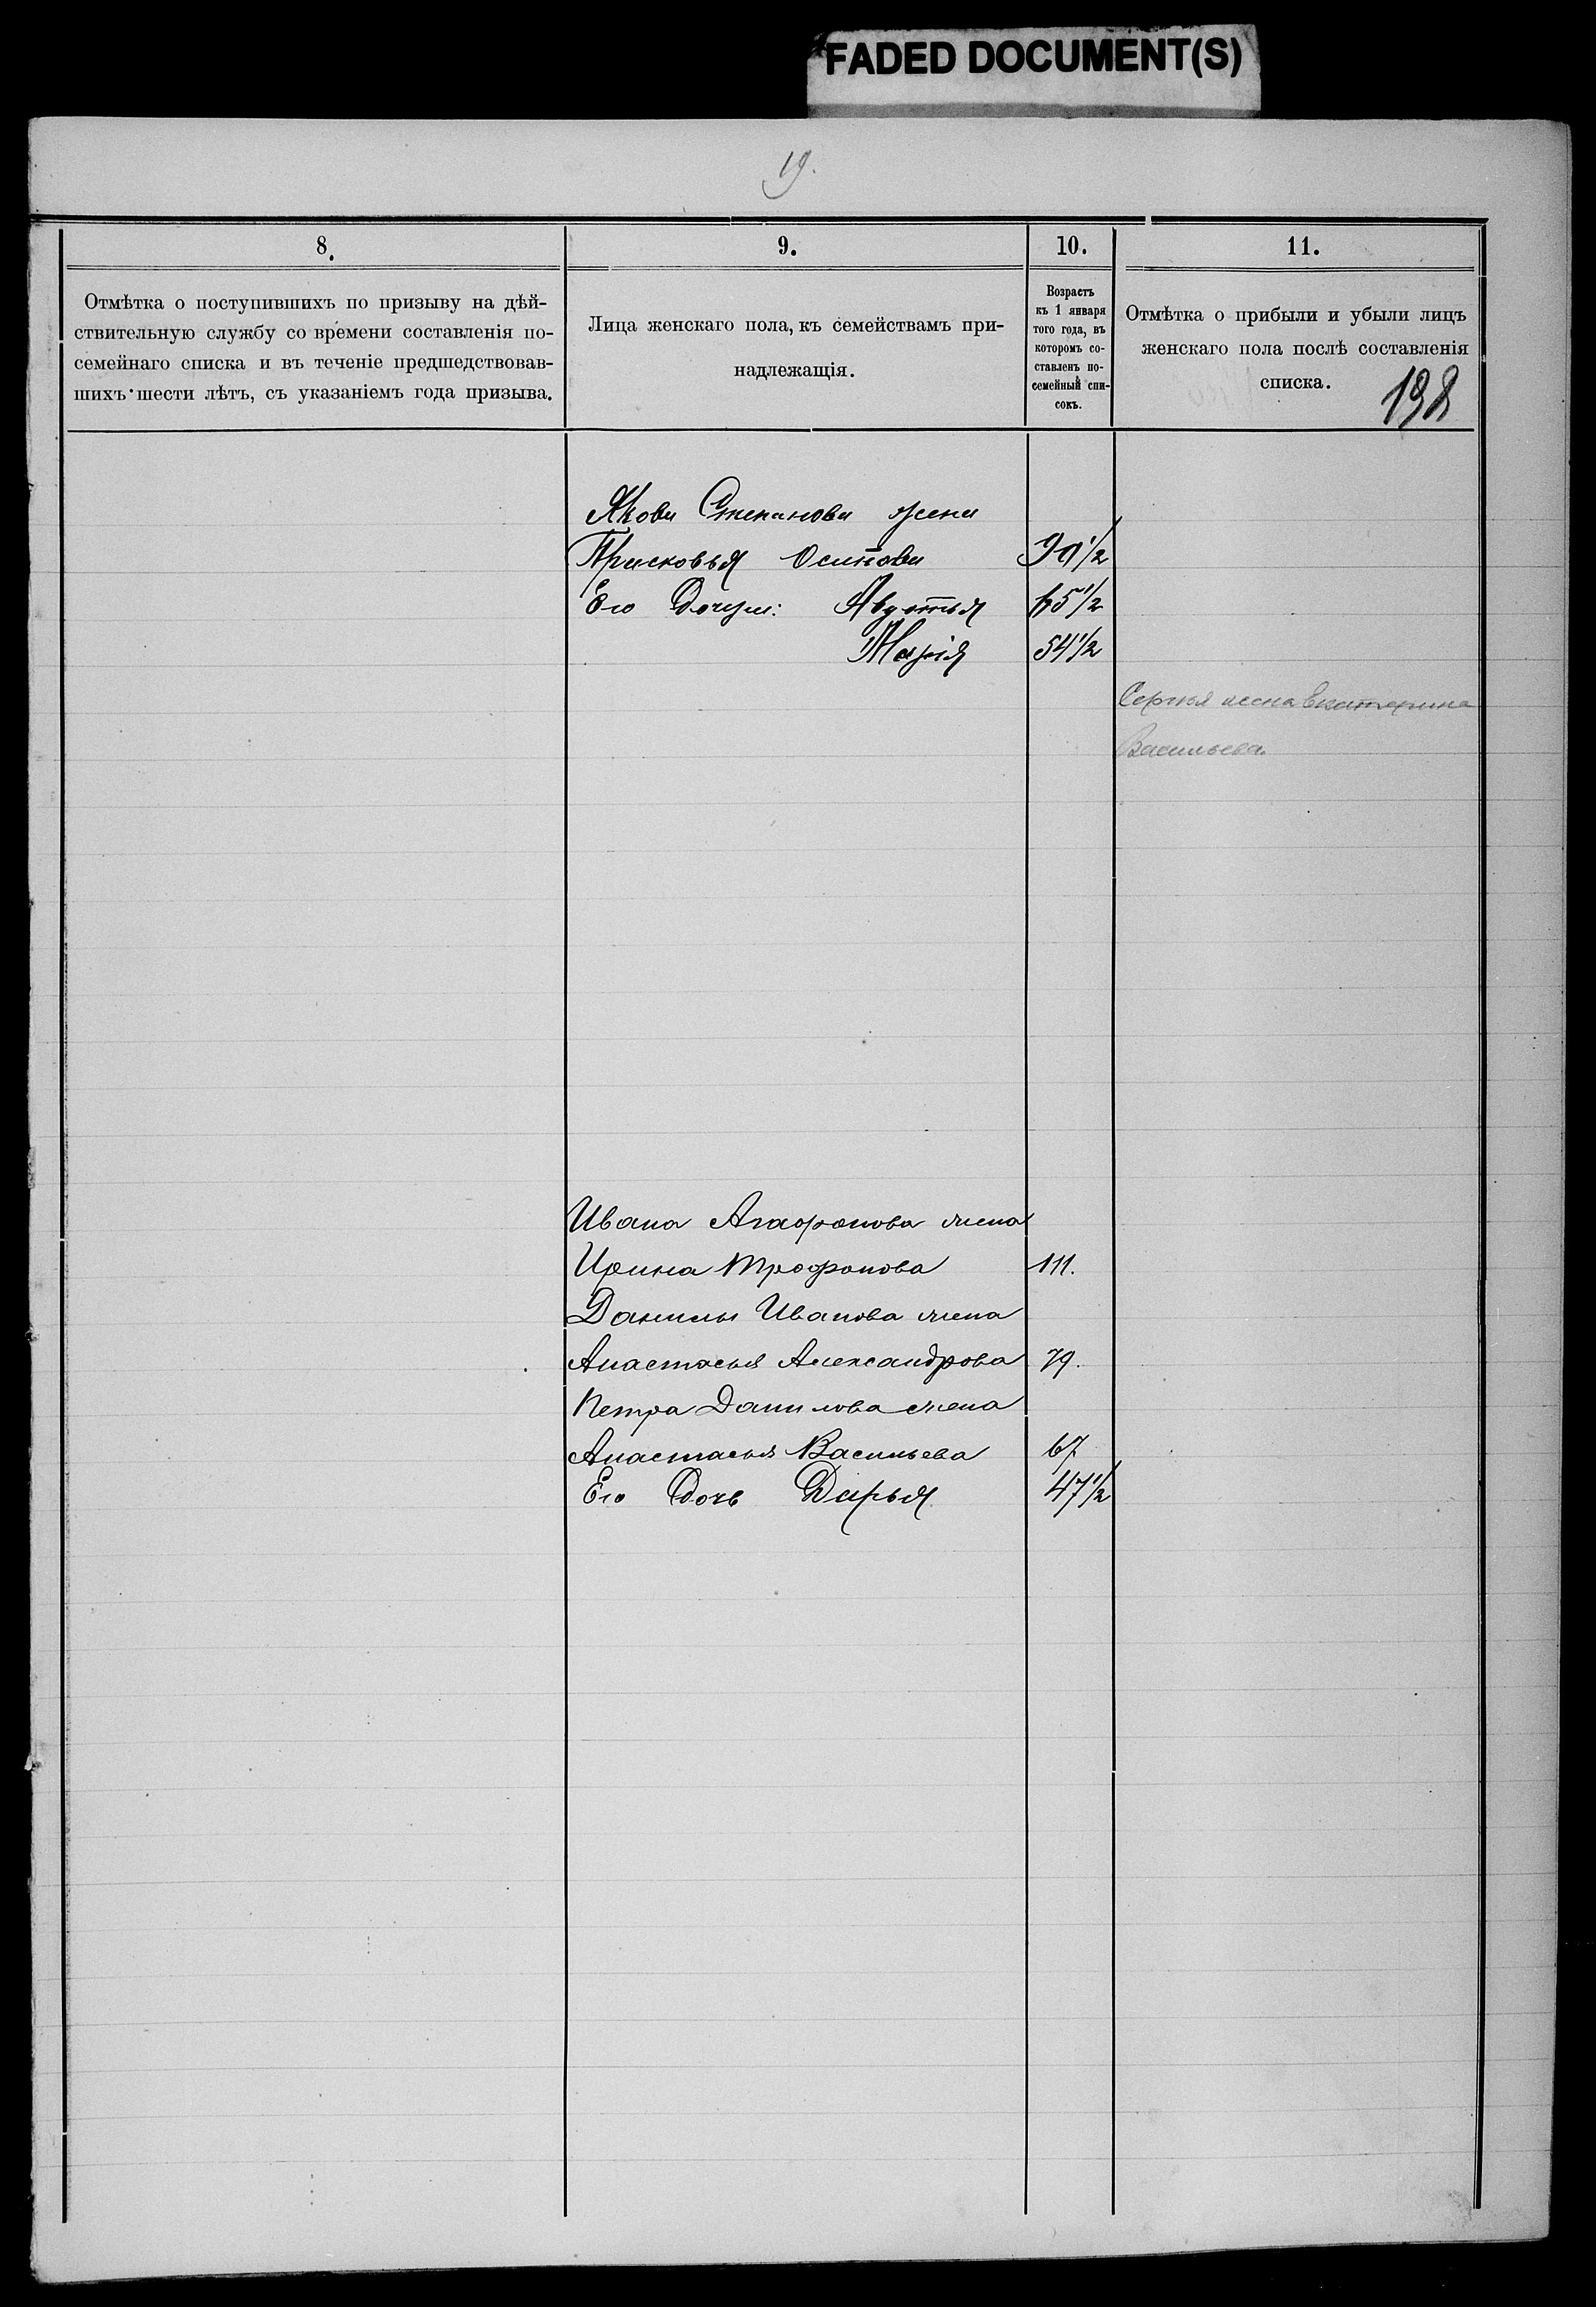 FADED DOCUMENT(S)
19.
8.
9.
10.
11.
Отмѣтка о поступившихъ по призыву на дѣй-
ствительную службу со времени составленія по-
семейнаго списка и въ теченіе предшедствовав-
шихъ шести лѣтъ, съ указаніемъ года призыва.
Лица женскаго пола, къ семействамъ при-
надлежащія.
Возрастъ
къ 1 января
того года, въ
которомъ со-
ставленъ по-
семейный спи-
сокъ.
Отмѣтка о прибыли и убыли лицъ
женскаго пола послѣ составленія
списка.
198
Якова Степанова жена
Прасковья Осипова 90 1/2
Его Дочери: Авдотья 65 1/2
Марія 54 1/2
Сергѣя жена Екатерина
Васильева.
Ивана Агафонова жена
Ирина Трофонова 111.
Данилы Иванова жена
Анастасья Александрова 79.
Петра Данилова жена
Анастасья Васильева 67
Его Дочь Дарья 47 1/2